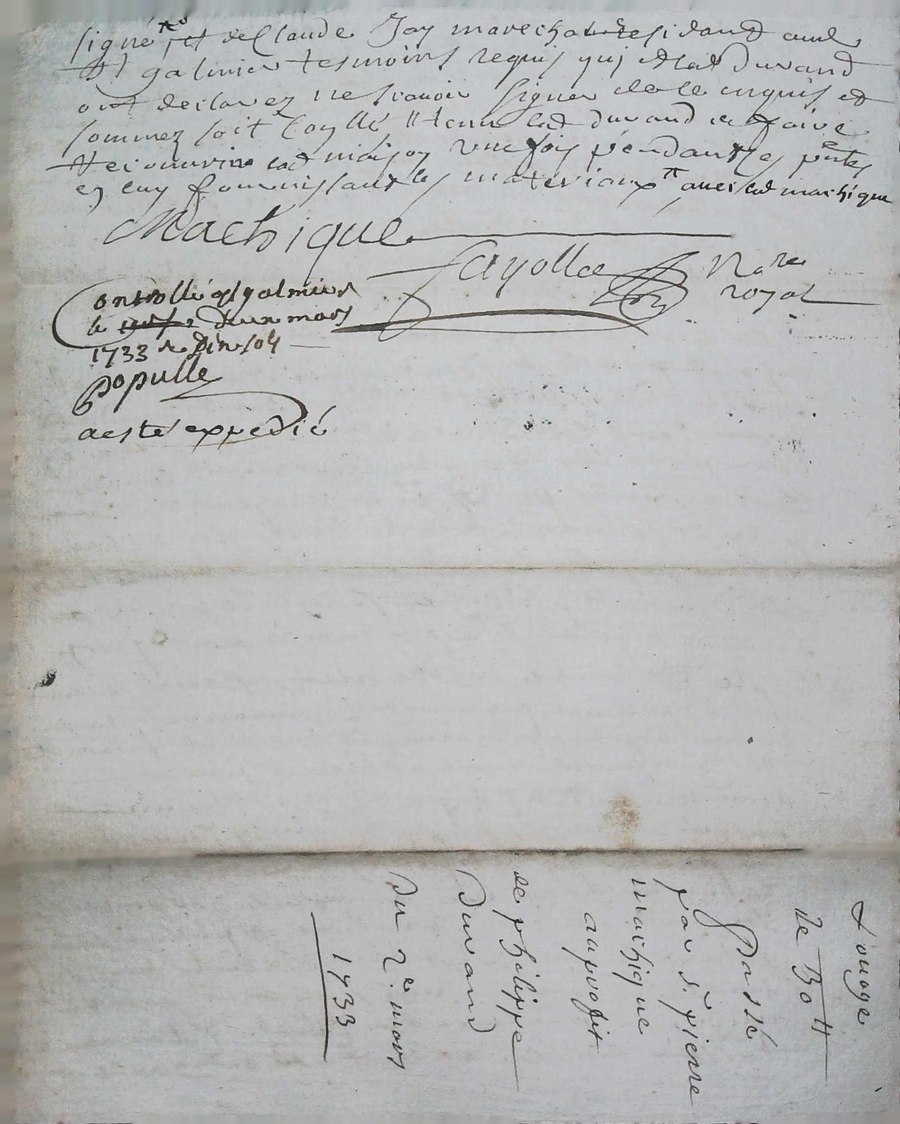 signé et de Claude Jay marechal residant aud
St galmier tesmoins requis qui et led durand
ont declarez ne scavoir signer de ce enquis et
sommez soit led durand faire
led maison une fois pendant les
en luy fournissant les materiaux avec led machique
Machique
Fayolle No.re
royal
Controllé a St galmier
le deux mars
1733
Populle
a esté expedié
Louage
de 30 tt
Passé
par Sr pierre
machique
au profit
de philippe
Durand
du 2e mars
1733